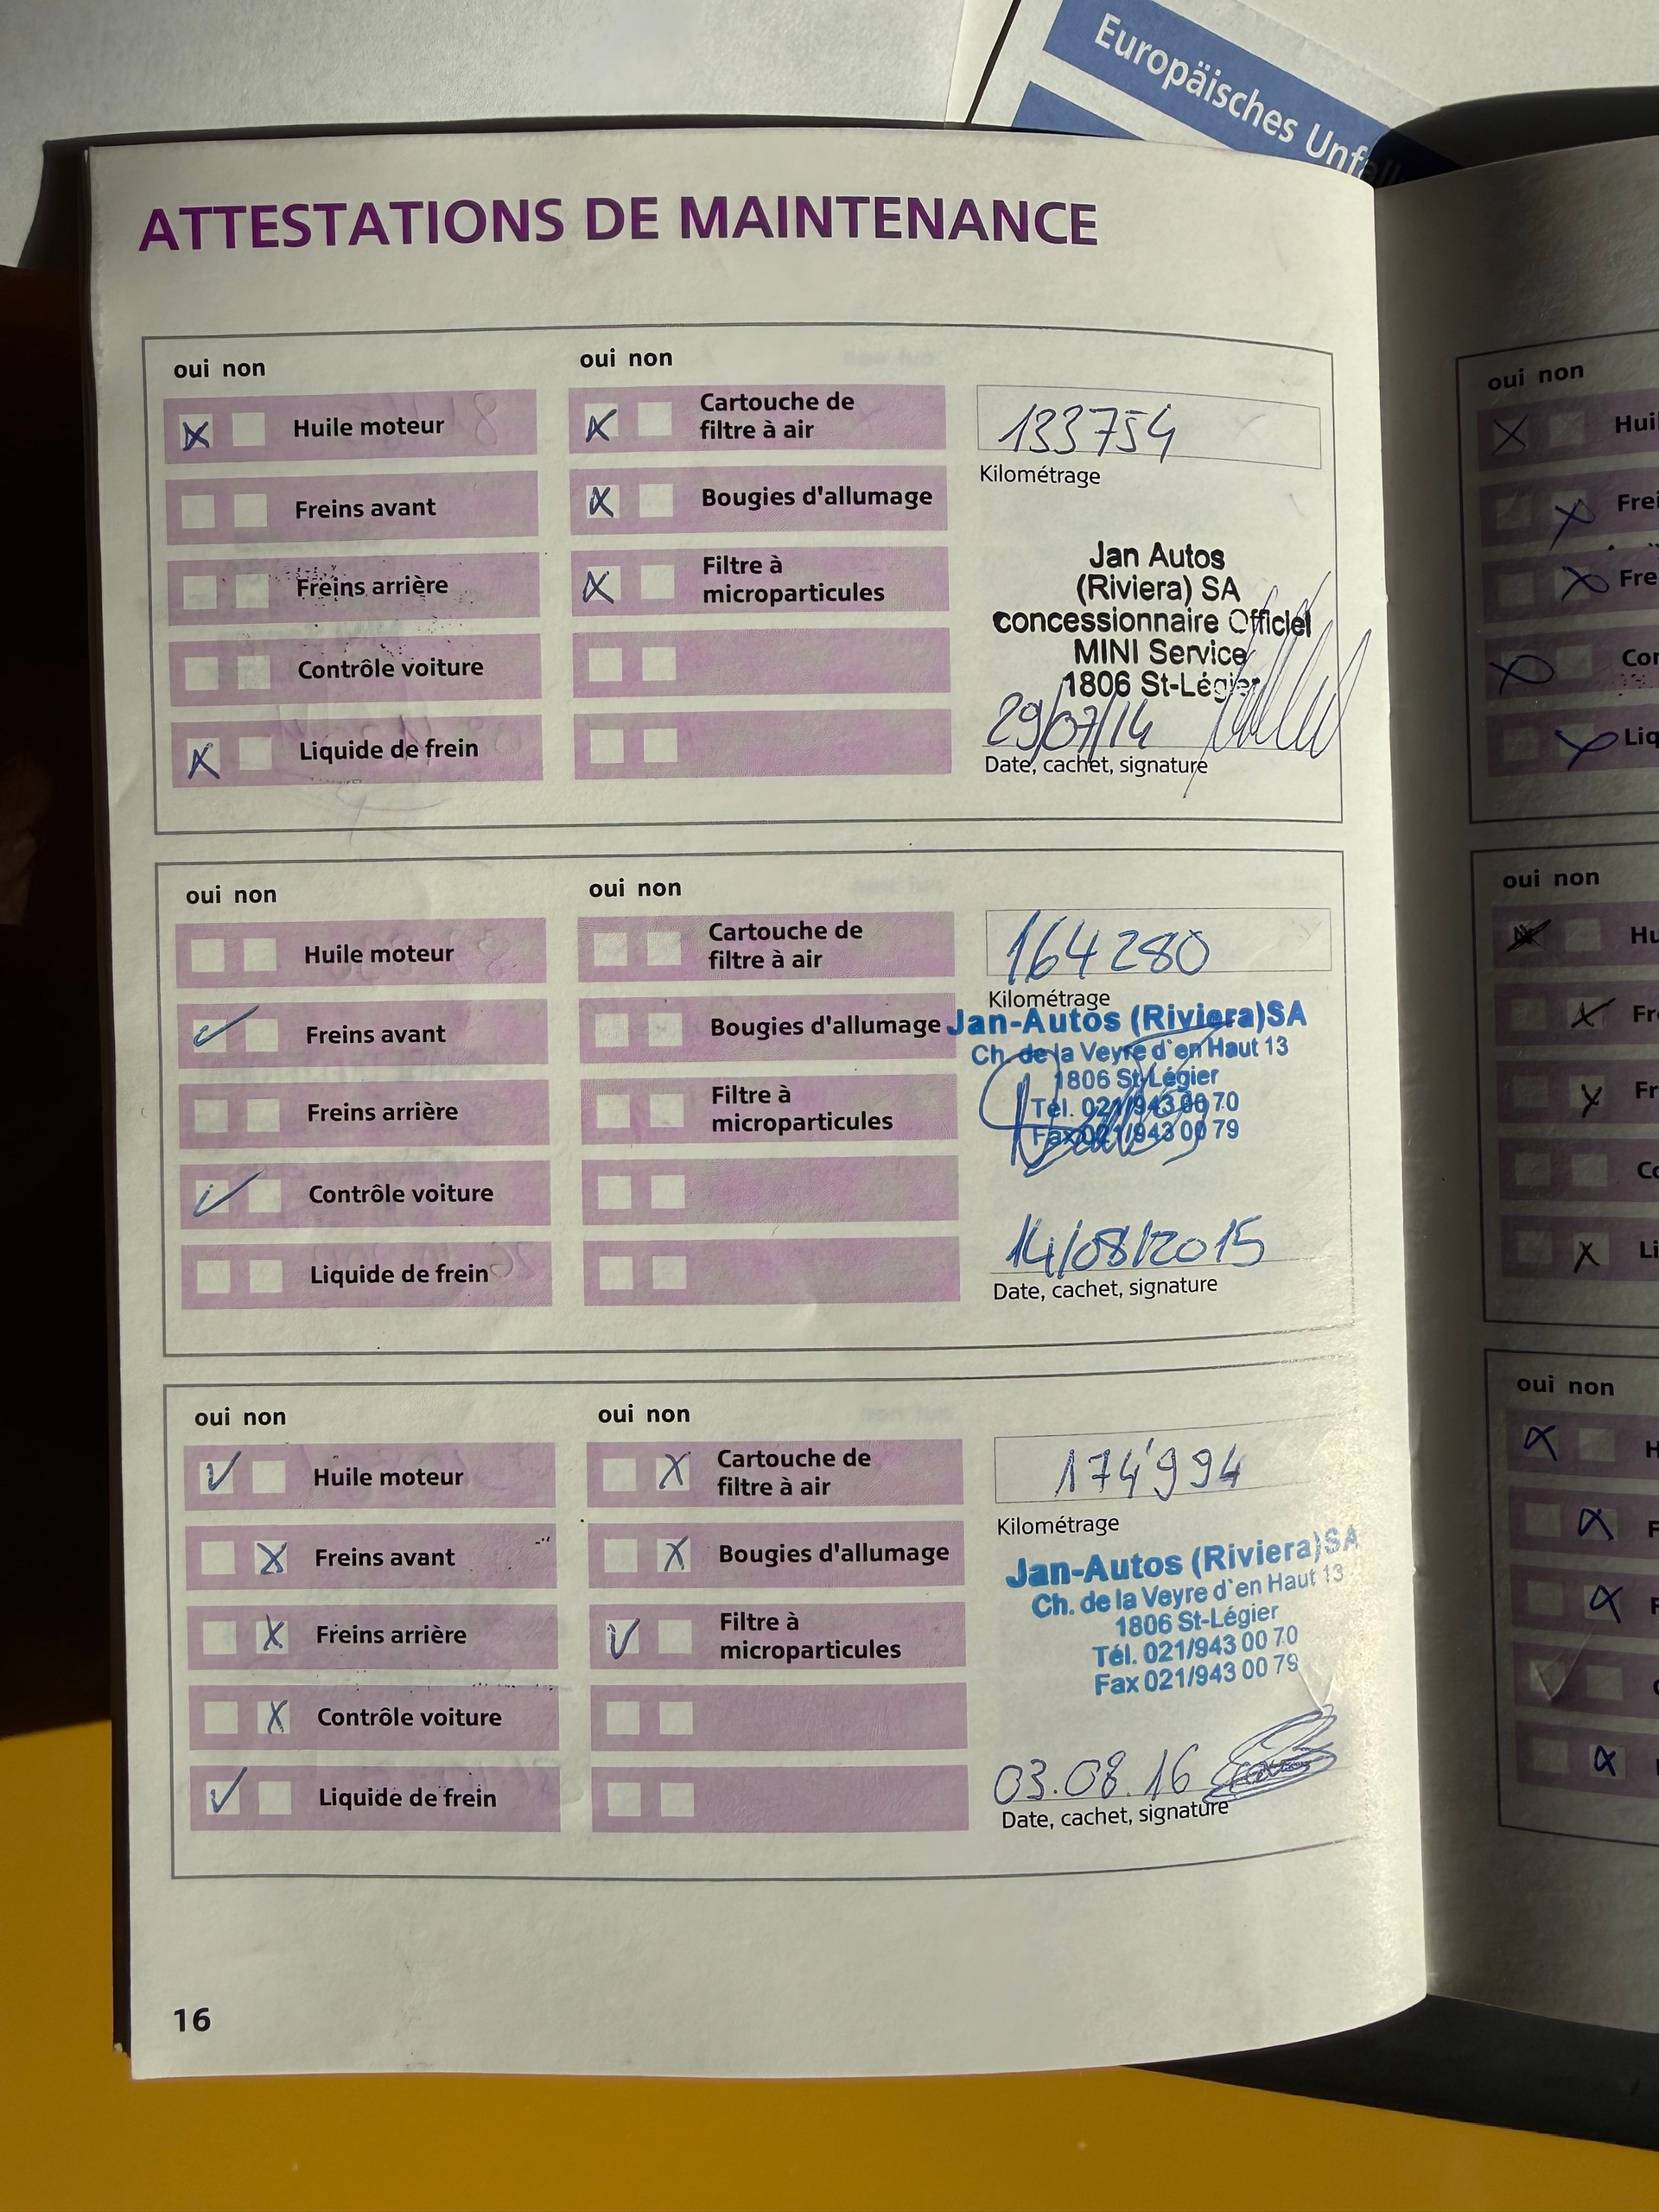 Europäisches Unfall
ATTESTATIONS DE MAINTENANCE
oui non
oui non
Huile moteur
Cartouche de
filtre à air
133754
Kilométrage
Freins avant
Bougies d'allumage
Freins arrière
Filtre à
microparticules
Contrôle voiture
Liquide de frein
Jan Autos
(Riviera) SA
concessionnaire Officiel
MINI Service
1806 St-Légier
29/07/14
Date, cachet, signature
oui non
oui non
Huile moteur
Cartouche de
filtre à air
164280
Kilométrage
Freins avant
Bougies d'allumage
Freins arrière
Filtre à
microparticules
Contrôle voiture
Liquide de frein
Jan-Autos (Riviera)SA
Ch. de la Veyre d'en Haut 13
1806 St-Légier
Tél. 021/943 00 70
Fax 021/943 00 79
14/08/2015
Date, cachet, signature
oui non
oui non
Huile moteur
Cartouche de
filtre à air
174'994
Kilométrage
Freins avant
Bougies d'allumage
Freins arrière
Filtre à
microparticules
Contrôle voiture
Liquide de frein
Jan-Autos (Riviera)SA
Ch. de la Veyre d'en Haut 13
1806 St-Légier
Tél. 021/943 00 70
Fax 021/943 00 79
03.08.16
Date, cachet, signature
16
oui non
Hui
Frei
Fre
Con
Liq
oui non
Hu
Fre
Fr
Co
Li
oui non
H
F
F